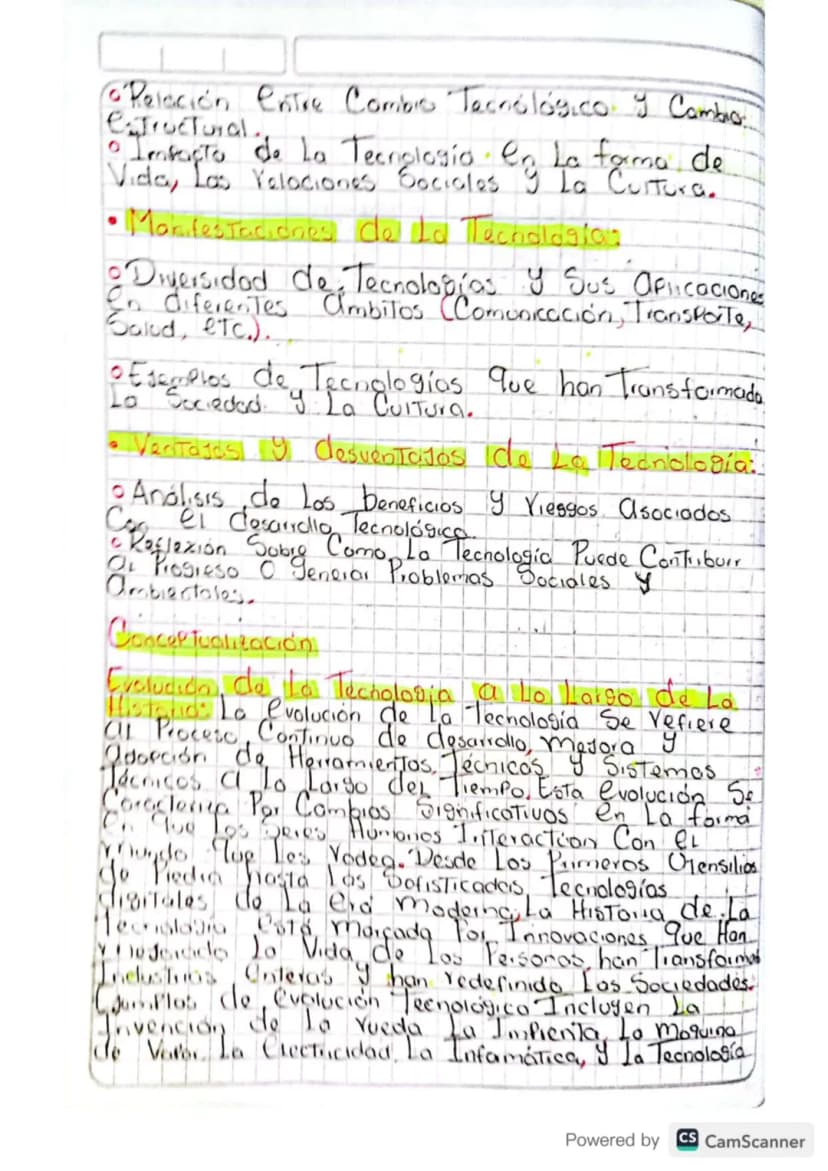 Relación Entre Cambio Tecnólógico y Cambio
Estructural.
Impacto de La Tecnologia en La forma de
Vida, Las relaciones Sociales y La Cultura.
• Manifestaciones de La Tecnologia:
Diversidad de Tecnologías y Sus aplicaciones
en diferentes ámbitos (Comunicación, Transporte,
Salud, etc.).
Ejemplos de Tecnologías que han Transformado
La Sociedad y La Cultura.
• Ventajas y desventajas de La Tecnología:
Análisis de Los beneficios y riesgos asociados
Con el desarrollo Tecnológico
Reflexión Sobre Como La Tecnología Puede Contribuir
al Progreso O generar Problemas Sociales y
ambientales.
Conceptualización
Evolución de La Tecnologia a Lo Largo de La
Historia: La evolución de La Tecnología Se refiere
al Proceso Continuo de desarrollo, mejora y
adopción de Herramientas, Técnicas y Sistemas
Técnicos a lo Largo del Tiempo. Esta evolución Se
Caracteriza Por Cambios Significativos en La forma
en que Los Seres Humanos Interactúan Con el
mundo que Les rodea. Desde Los Primeros Utensilios
de Piedra hasta las Sofisticadas Tecnologías
digitales de La era moderna, La Historia de La
Tecnología está marcada Por Innovaciones que Han
la Vida de Las Personas, han Transformado
Industrias enteras y han redefinido Las Sociedades.
Ejemplos de evolución Tecnológica Incluyen La
Invención de la rueda La Imprenta, La maquina
de Vapor, La electricidad, La Infamática, y la Tecnología
Powered by CS CamScanner